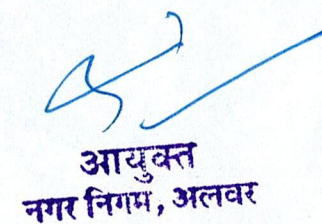 आयुक्त
नगर निगम, अलवर